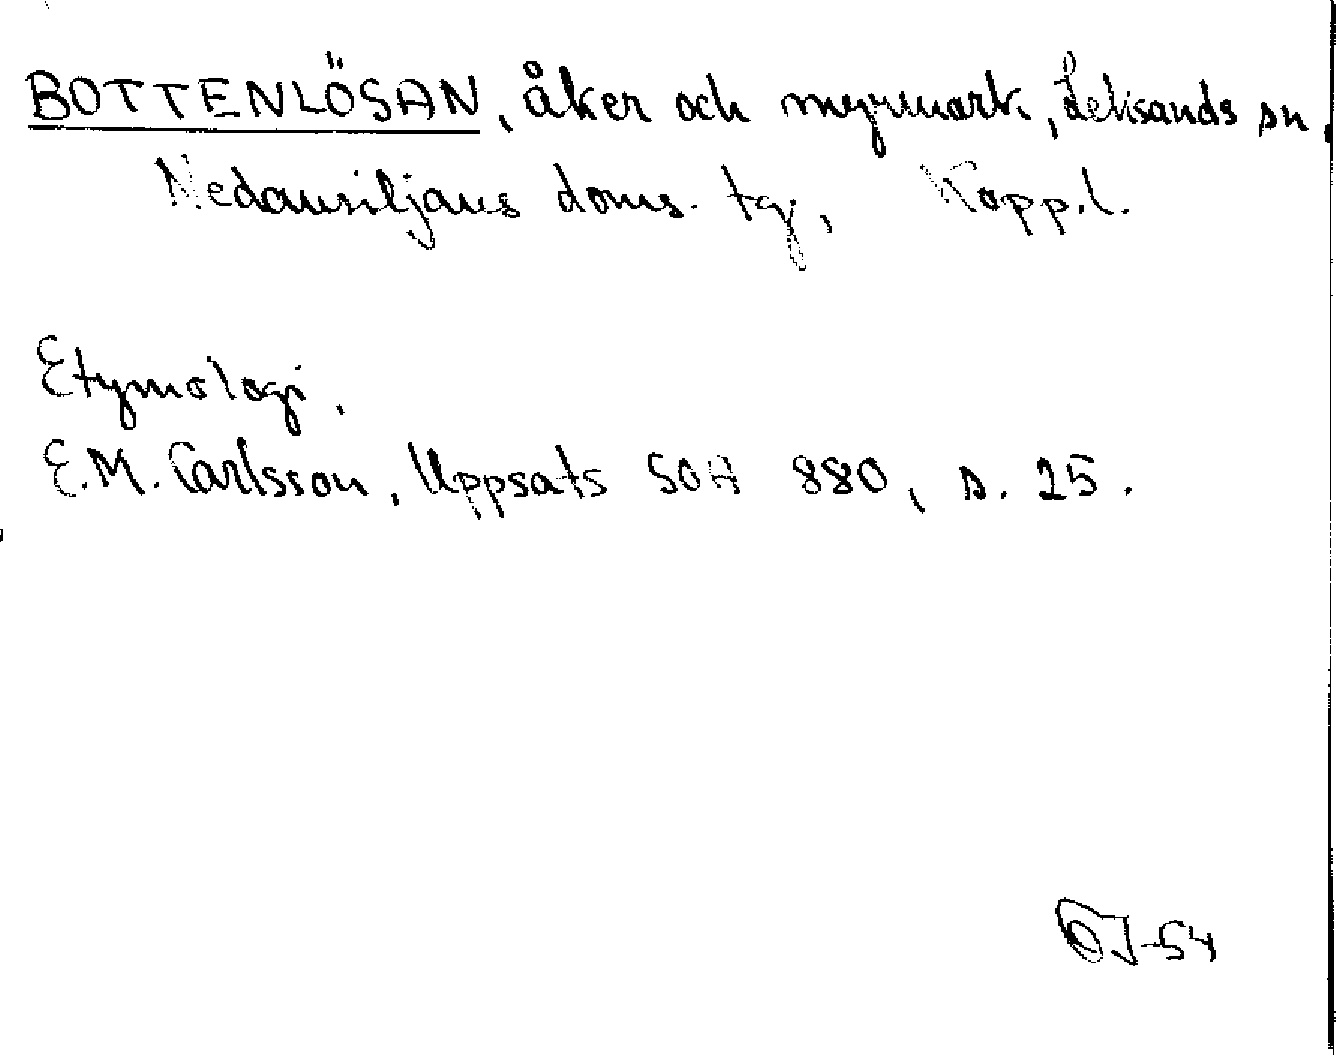 BOTTENLÖSAN, åker och myrmark, Leksands sn,
Nedansiljans doms. tg, Kopp.l.
Etymologi.
E.M. Carlsson, Uppsats SOA 880, s. 25.
-54